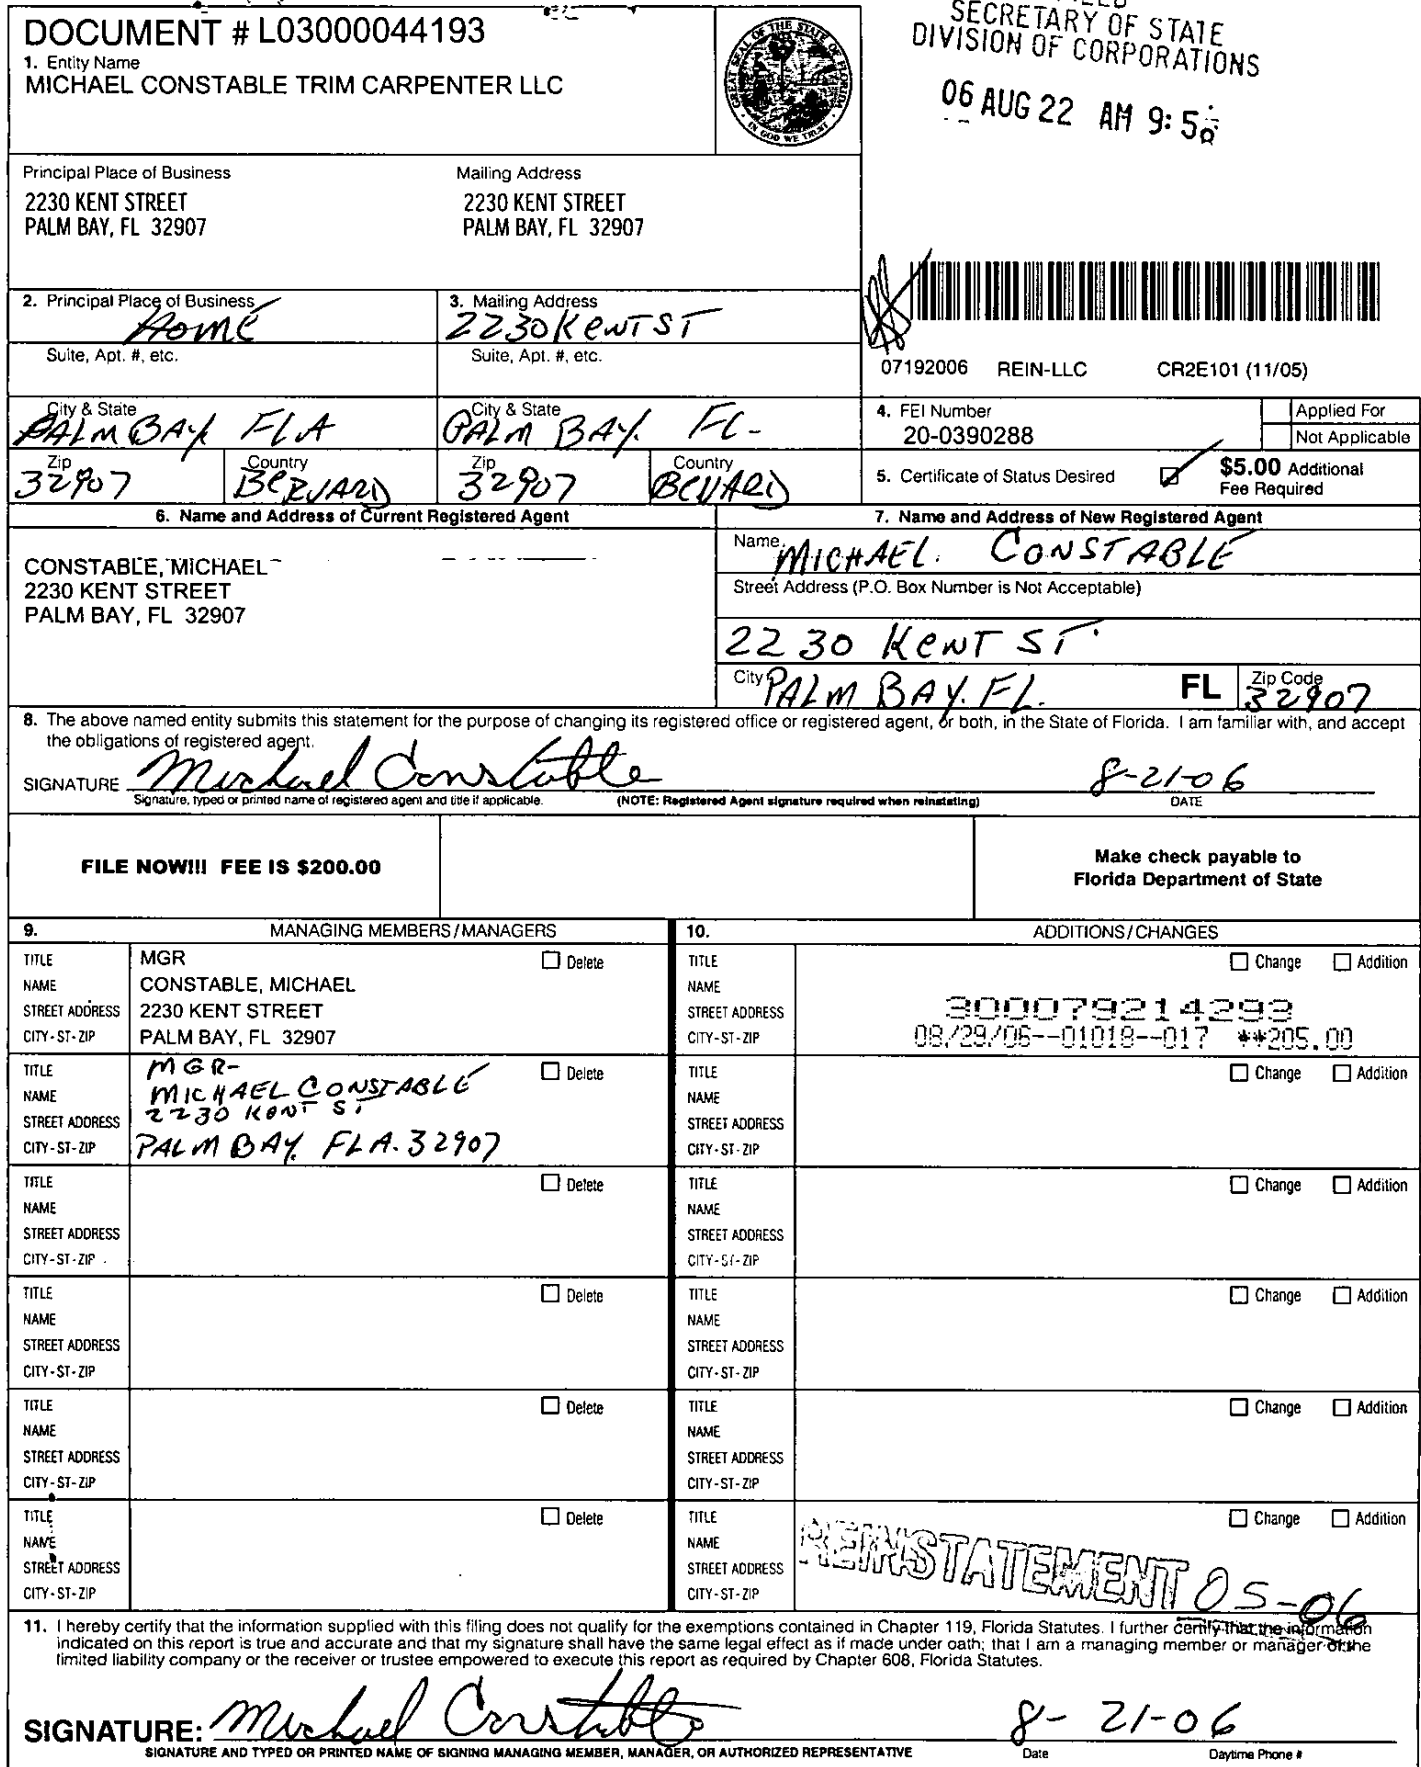 DOCUMENT # L03000044193
1. Entity Name
MICHAEL CONSTABLE TRIM CARPENTER LLC
GREAT SEAL OF THE STATE OF FLORIDA
IN GOD WE TRUST
SECRETARY OF STATE
DIVISION OF CORPORATIONS
06 AUG 22 AM 9:
Principal Place of Business
2230 KENT STREET
PALM BAY, FL 32907
Mailing Address
2230 KENT STREET
PALM BAY, FL 32907
07192006 REIN-LLC CR2E101 (11/05)
2. Principal Place of Business
HOME
3. Mailing Address
2230 KENT ST
Suite, Apt. #, etc.
Suite, Apt. #, etc.
City & State
PALM BAY FLA
City & State
PALM BAY. FL-
Zip
32907
Country
BERVARD
Zip
32907
Country
BEVARD
4. FEI Number
20-0390288
Applied For
Not Applicable
5. Certificate of Status Desired
$5.00 Additional
Fee Required
6. Name and Address of Current Registered Agent
CONSTABLE, MICHAEL
2230 KENT STREET
PALM BAY, FL 32907
7. Name and Address of New Registered Agent
Name
MICHAEL. CONSTABLE
Street Address (P.O. Box Number is Not Acceptable)
2230 KENT ST.
City PALM BAY. FL. FL Zip Code 32907
8. The above named entity submits this statement for the purpose of changing its registered office or registered agent, or both, in the State of Florida. I am familiar with, and accept
the obligations of registered agent.
SIGNATURE Michael Constable 8-21-06
Signature, typed or printed name of registered agent and title if applicable. (NOTE: Registered Agent signature required when reinstating) DATE
FILE NOW!!! FEE IS $200.00
Make check payable to
Florida Department of State
9. MANAGING MEMBERS/MANAGERS
TITLE MGR Delete
NAME CONSTABLE, MICHAEL
STREET ADDRESS 2230 KENT STREET
CITY-ST-ZIP PALM BAY, FL 32907
TITLE MGR- Delete
NAME MICHAEL CONSTABLE
STREET ADDRESS 2230 KENT ST
CITY-ST-ZIP PALM BAY. FLA. 32907
TITLE Delete
NAME
STREET ADDRESS
CITY-ST-ZIP
TITLE Delete
NAME
STREET ADDRESS
CITY-ST-ZIP
TITLE Delete
NAME
STREET ADDRESS
CITY-ST-ZIP
TITLE Delete
NAME
STREET ADDRESS
CITY-ST-ZIP
10. ADDITIONS/CHANGES
TITLE Change Addition
NAME
STREET ADDRESS 300079214293
CITY-ST-ZIP 08/29/06--01018--017 **205.00
TITLE Change Addition
NAME
STREET ADDRESS
CITY-ST-ZIP
TITLE Change Addition
NAME
STREET ADDRESS
CITY-ST-ZIP
TITLE Change Addition
NAME
STREET ADDRESS
CITY-ST-ZIP
TITLE Change Addition
NAME
STREET ADDRESS
CITY-ST-ZIP
TITLE Change Addition
NAME
STREET ADDRESS
CITY-ST-ZIP
REINSTATEMENT 05-06
11. I hereby certify that the information supplied with this filing does not qualify for the exemptions contained in Chapter 119, Florida Statutes. I further certify that the information
indicated on this report is true and accurate and that my signature shall have the same legal effect as if made under oath; that I am a managing member or manager of the
limited liability company or the receiver or trustee empowered to execute this report as required by Chapter 608, Florida Statutes.
SIGNATURE: Michael Constable 8-21-06
SIGNATURE AND TYPED OR PRINTED NAME OF SIGNING MANAGING MEMBER, MANAGER, OR AUTHORIZED REPRESENTATIVE Date Daytime Phone #